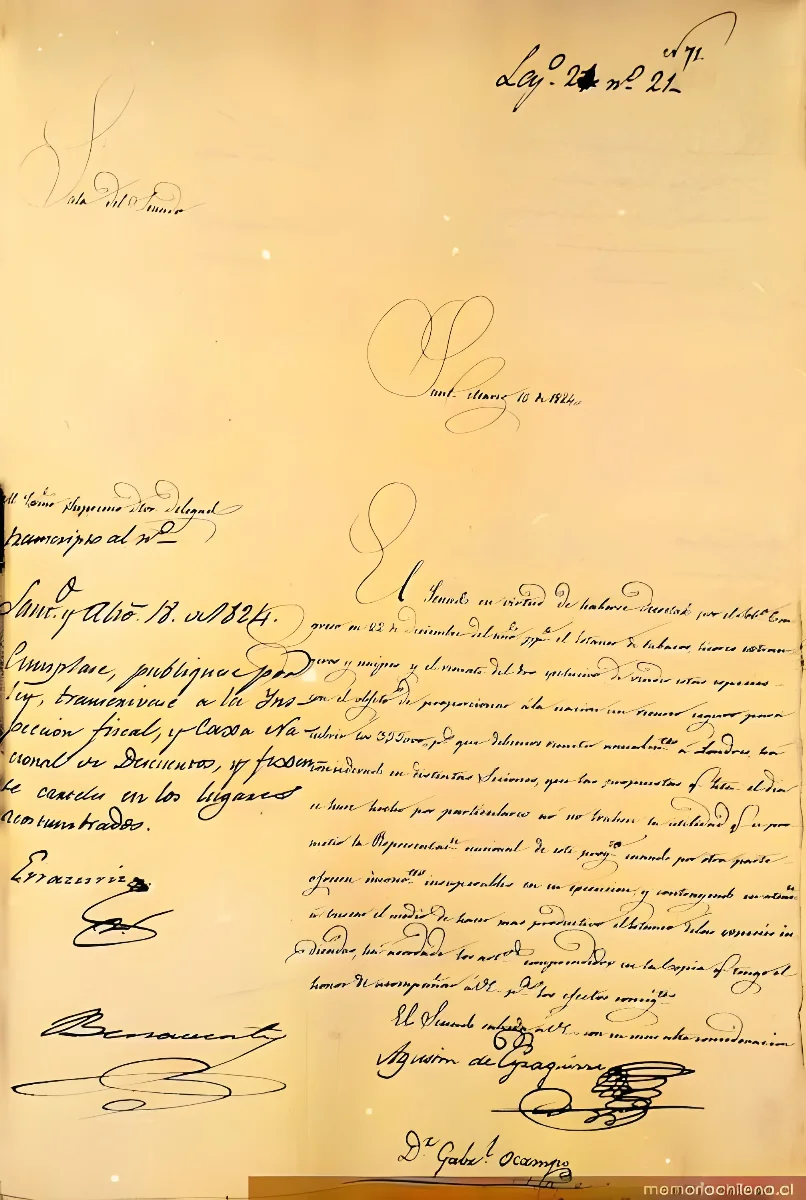 N 71.
Leg.o 21 n.o 21
Sala del Senado
Sant. Marzo 10 de 1824
Al Exmo Supremo Dtor. Delegad
transcripto al n.o
Sant.o y Abo. 18. de 1824.
Cumplase, publiquese por
ley, transcrivase a la Ins
peccion fiscal, y Caxa Na
cional de Descuentos, y fixen
se carteles en los lugares
acostumbrados.
Errazuriz
Benavente
El Senado en virtud de haberse decretado por el Sob.o Con
greso en 22 de Diciembre del año pp.o el Estanco de tabacos, licores extran
geros y naipes y el remate del dro exclusivo de vender estas especies
con el objeto de proporcionar á la nacion un recurso seguro para
cubrir los p.s que debemos remitir anualm.te á Londres, ha
considerado en distintas Sesiones, que las propuestas q. hta. el dia
se han hecho por particulares no la utilidad q. se pro
metio la Representac.n nacional de este proy.to cuando por otra parte
ofrecen inconv.tes insuperables en su execucion, y
el medio de hacer mas productivo el Estanco de las especies in
dicadas, há acordado los art.s comprendidos en la Copia q. tengo el
honor de acompañar á V.E. p.a los efectos consig.tes
El Senado saluda á V.E. con su mas alta consideracion
Agustin de Eyzaguirre
D.r Gab.l Ocampo
memoriachilena.cl